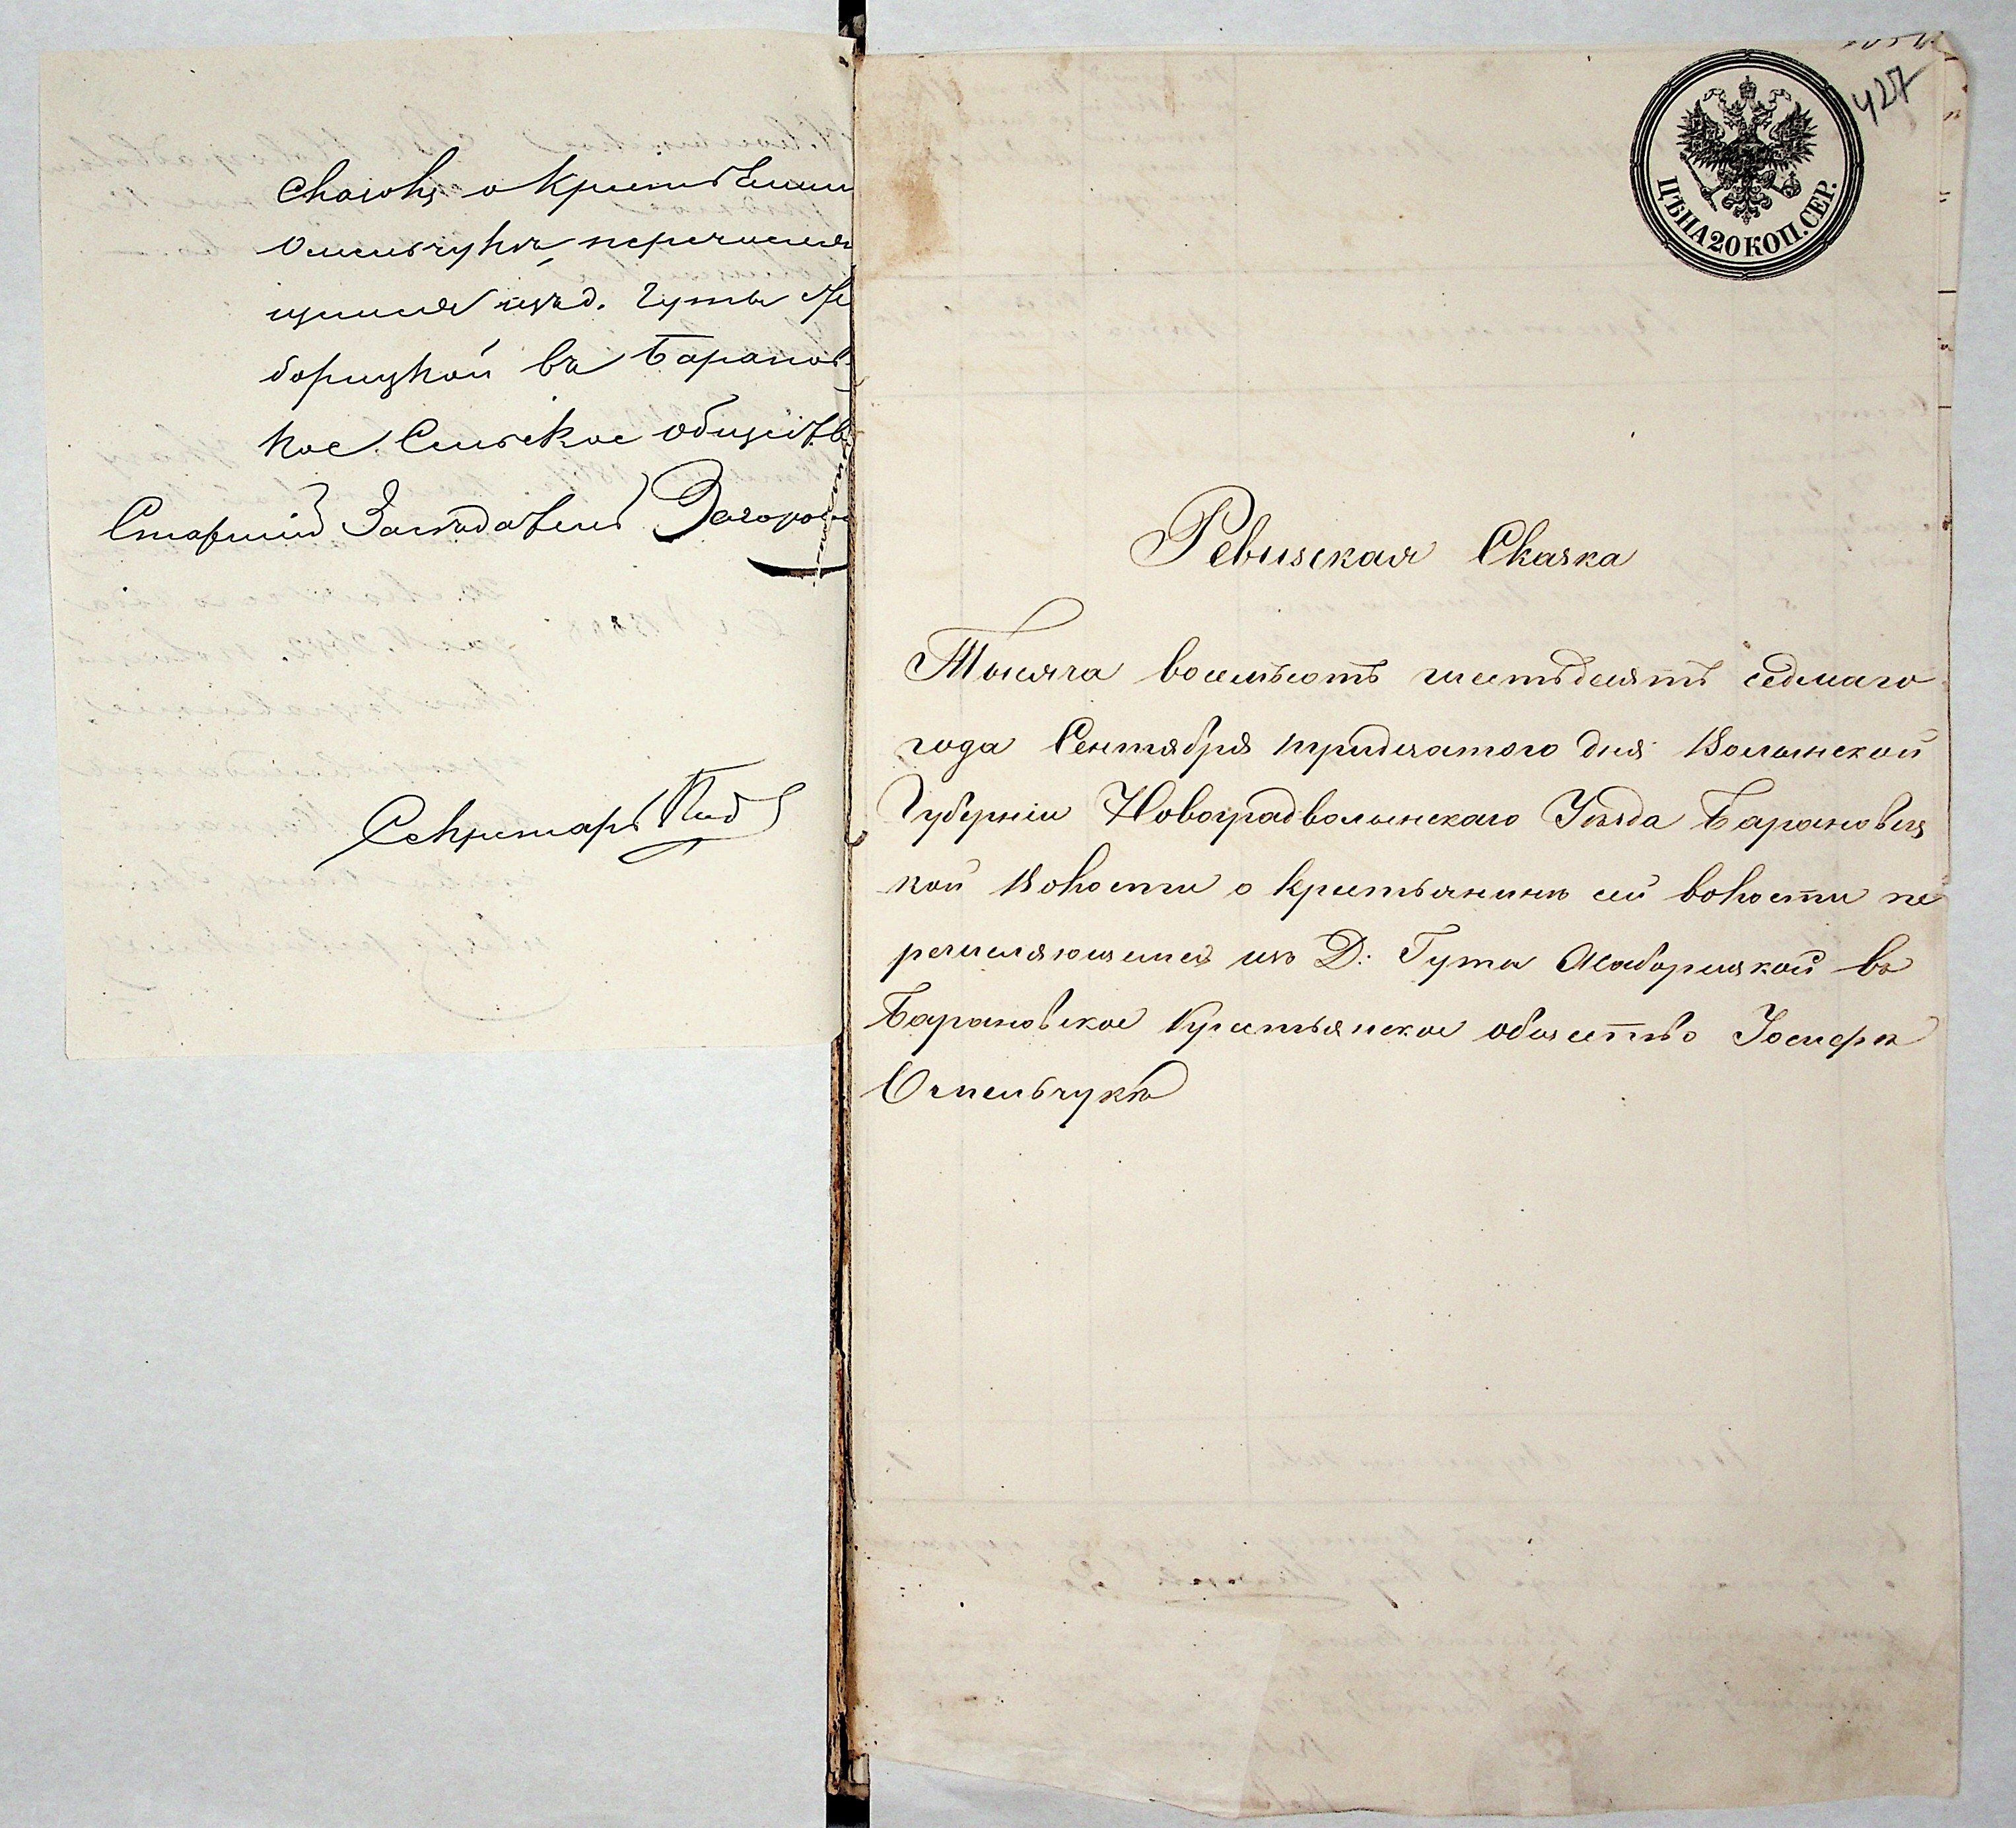 сказку о крестьянин
Омельчукъ, перечисля
щимся изъ д. Гуты Жа
борицкой въ Барановс
кое Сельское общество
Старшій Засѣдатель
Секретарь
427
ЦѢНА 20 КОП. СЕР.
Ревизская Сказка
Тысяча восемьсотъ шестьдесятъ седмаго
года Сентября тридцатого дня Волынской
Губерніи Новоградволынскаго Уѣзда Барановс
кой Волости о крестьянинѣ сей волости пе
речисляющемся изъ Д: Гуты Жаборицкой въ
Барановское Крестьянское общество Іосифѣ
Омельчукѣ